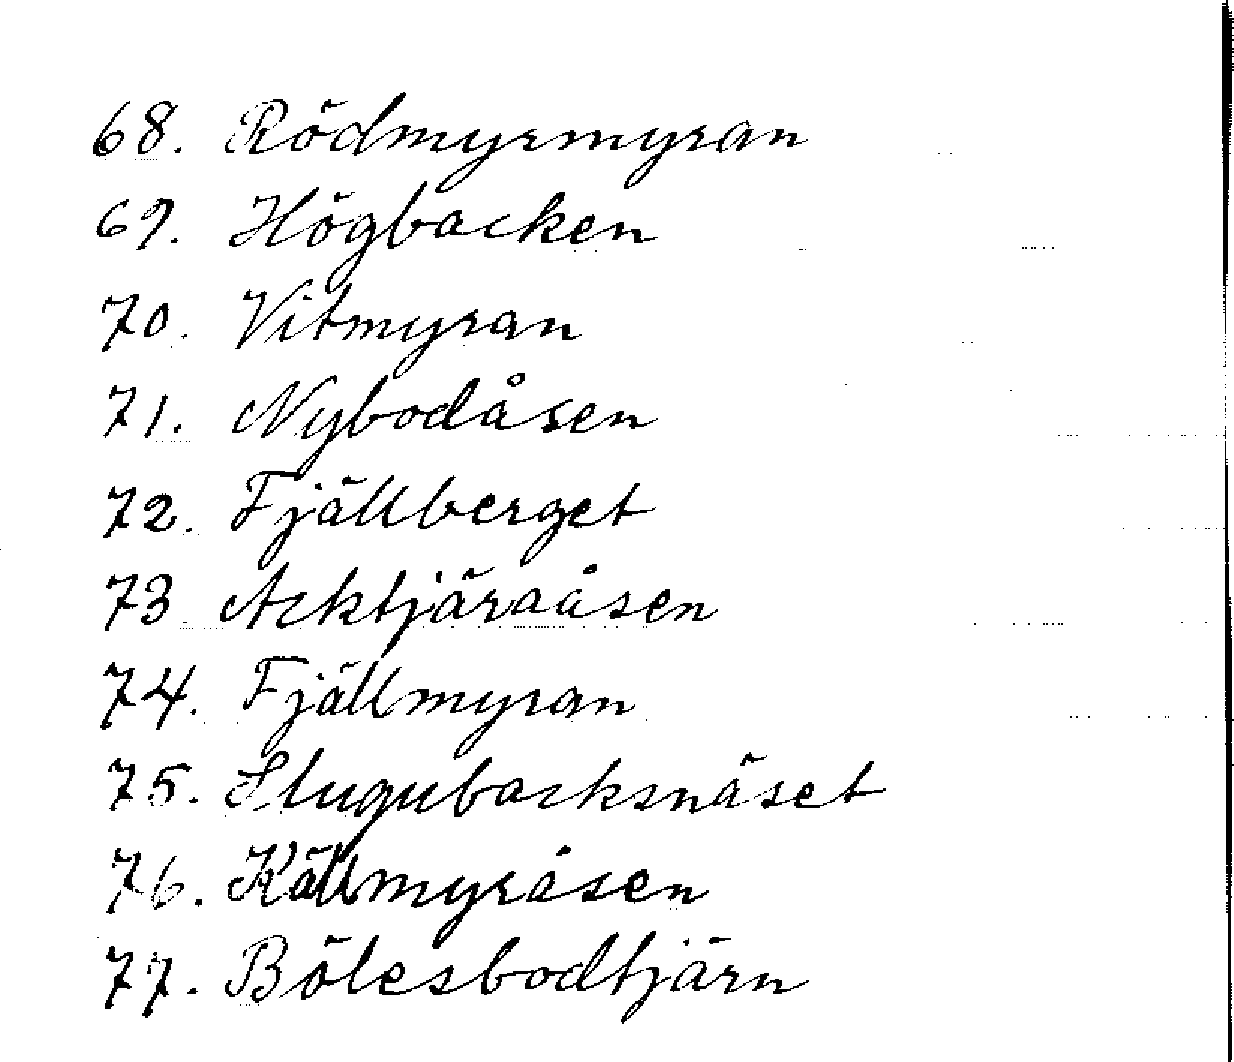 68. Rödmyrmyran
69. Högbacken
70. Vitmyran
71. Nybodåsen
72. Fjällberget
73. Acktjäraåsen
74. Fjällmyran
75. Slugubacksnäset
76. Källmyråsen
77. Bölesbodtjärn